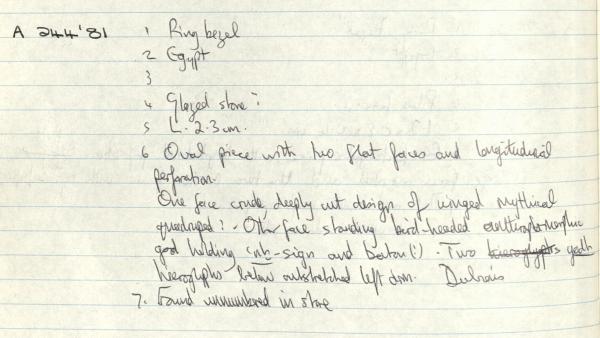 A 244'81 1 Ring bezel
2 Egypt
3
4 Glazed stone?
5 L. 2.3cm.
6 Oval piece with two flat faces and longitudinal
perforation.
One face crude, deeply cut design of winged mythical
quadruped? - Other face standing bird-headed anthropomorphic
god holding nb-sign and baton(?) - Two
hieroglyphs below outstretched left arm.
7. Found unnumbered in store